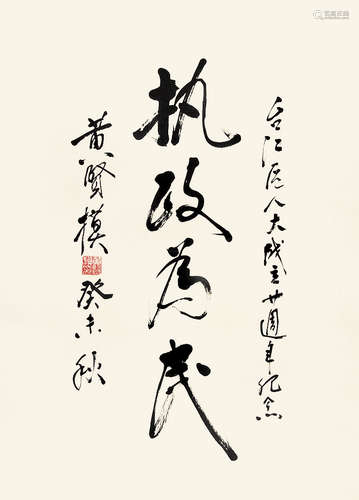 台江区人大成立廿週年纪念
执政為民
黄贤模
癸未秋